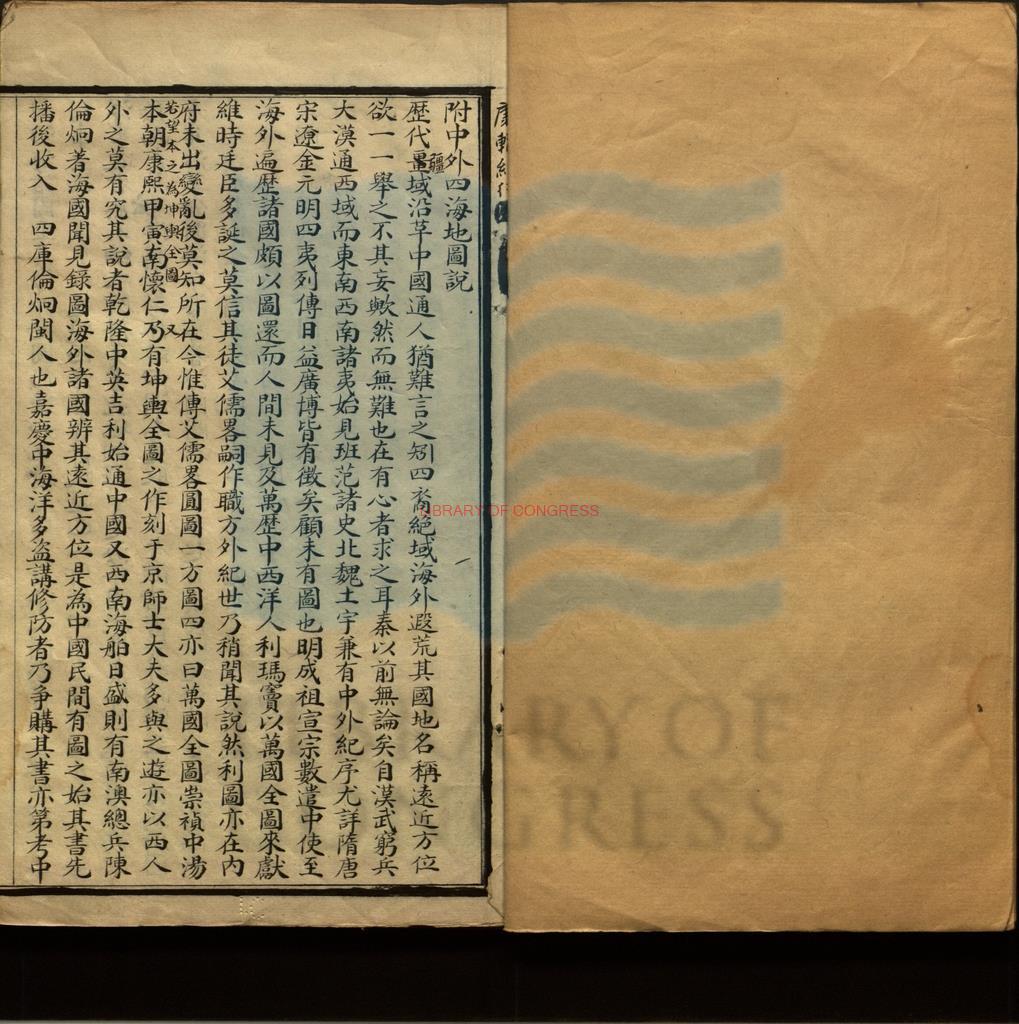 附中外四海地圖說
歴代畺域沿革中國通人猶難言之矧四裔絕域海外遐荒其國地名稱遠近方位
疆
欲一一舉之不其妄歟然而無難也在有心者求之耳秦以前無論矣自漢武窮兵
大漠通西域而東南西南諸夷始見班范諸史北魏土宇兼有中外紀序尤詳隋唐
宋遼金元明四夷列傳日益廣博皆有徵矣顧未有圖也明成祖宣宗數遣中使至
海外遍歴諸國頗以圖還而人間未見及萬歴中西洋人利瑪竇以萬國全圖來獻
維時廷臣多誕之莫信其徒艾儒畧嗣作職方外紀世乃稍聞其說然利圖亦在內
府未出變亂後莫知所在今惟傳艾儒畧圓圖一方圖四亦曰萬國全圖崇禎中湯
若望本之為坤輿全圖 又
本朝康熙甲寅南懷仁乃有坤輿全圖之作刻于京師士大夫多與之遊亦以西人
外之莫有究其說者乾隆中英吉利始通中國又西南海舶日盛則有南澳總兵陳
倫炯著海國聞見錄圖海外諸國辨其遠近方位是為中國民間有圖之始其書先
播後收入 四庫倫炯閩人也嘉慶中海洋多盜講修防者乃爭購其書亦第考中
LIBRARY OF CONGRESS